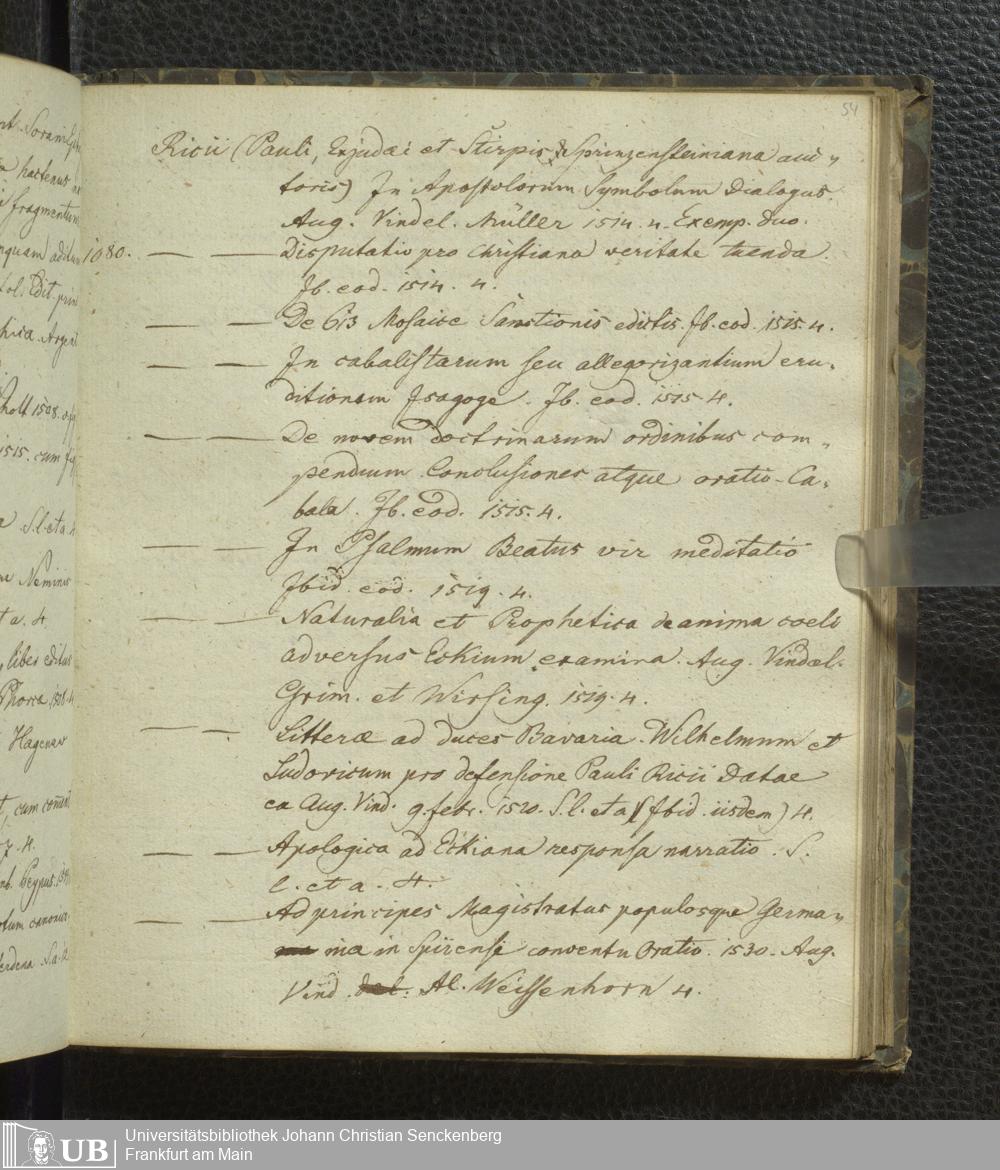 54
Ricii (Pauli, Exjudæi et Stirpis Sprinzensteiniana auc„
toris) In Apostolorum Symbolum Dialogus.
Aug. Vindel. Müller 1514. 4. Exemp. duo.
1080. — — Disputatio pro Christiana veritate tuenda.
Ib. eod. 1514. 4.
— — De 613 Mosaice Sanctionis edictis. Ib. eod. 1515. 4.
— — In cabalistarum seu allegorizantium eru„
ditionem Isagoge. Ib. eod. 1515. 4.
— — De novem doctrinarum ordinibus com„
pendium Conclusiones atque oratio. Ca„
bala. Ib. eod. 1515. 4.
— — In Psalmum Beatus vir meditatio
Ibid. eod. 1519. 4.
— — Naturalia et Prophetica de anima coeli
adversus Eckium examina. Aug. Vindel.
Grim. et Wirsing. 1519. 4.
— — Litteræ ad duces Bavaria Wilhelmum et
Ludovicum pro defensione Pauli Ricii Datae
ex Aug. Vind. 9. febr. 1520. S. l. et a (Ibid. iisdem) 4.
— — Apologica ad Eckiana responsa narratio. S.
l. et a. 4.
— — Ad principes Magistratus populosque Germa„
niæ in Spirensi conventu Oratio. 1530. Aug.
Vind. Al. Weissenhorn 4.
fragmentum
1508.
1515. cum
S. l. et a. 4
Neminis
et a. 4.
liber editus
Hagenav
cum
S. a.
UB
Universitätsbibliothek Johann Christian Senckenberg
Frankfurt am Main